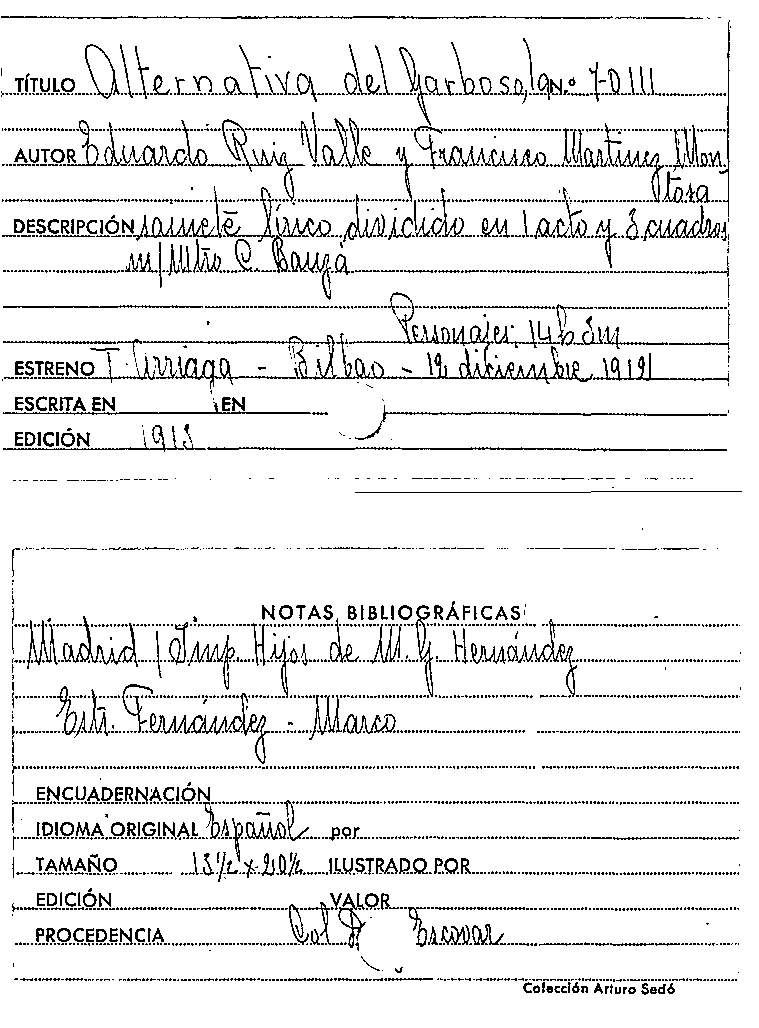 TÍTULO Alternativa del Garboso, la N.º 7-0111
AUTOR Eduardo Ruiz Valle y Francisco Martinez Mon-
tosa
DESCRIPCIÓN sainete lírico dividido en 1 acto y 3 cuadros
m/ Mtro C. Bauzá
Personajes: 14 h 3 m
ESTRENO T. Arriaga - Bilbao - 12 diciembre 1912
ESCRITA EN EN
EDICIÓN 1913
NOTAS BIBLIOGRÁFICAS
Madrid / Imp. Hijos de M. G. Hernández
Estr. Fernández - Marco
ENCUADERNACIÓN
IDIOMA ORIGINAL Español por
TAMAÑO 13½ x 20½ ILUSTRADO POR
EDICIÓN VALOR
PROCEDENCIA Col Escovar
Colección Arturo Sedó